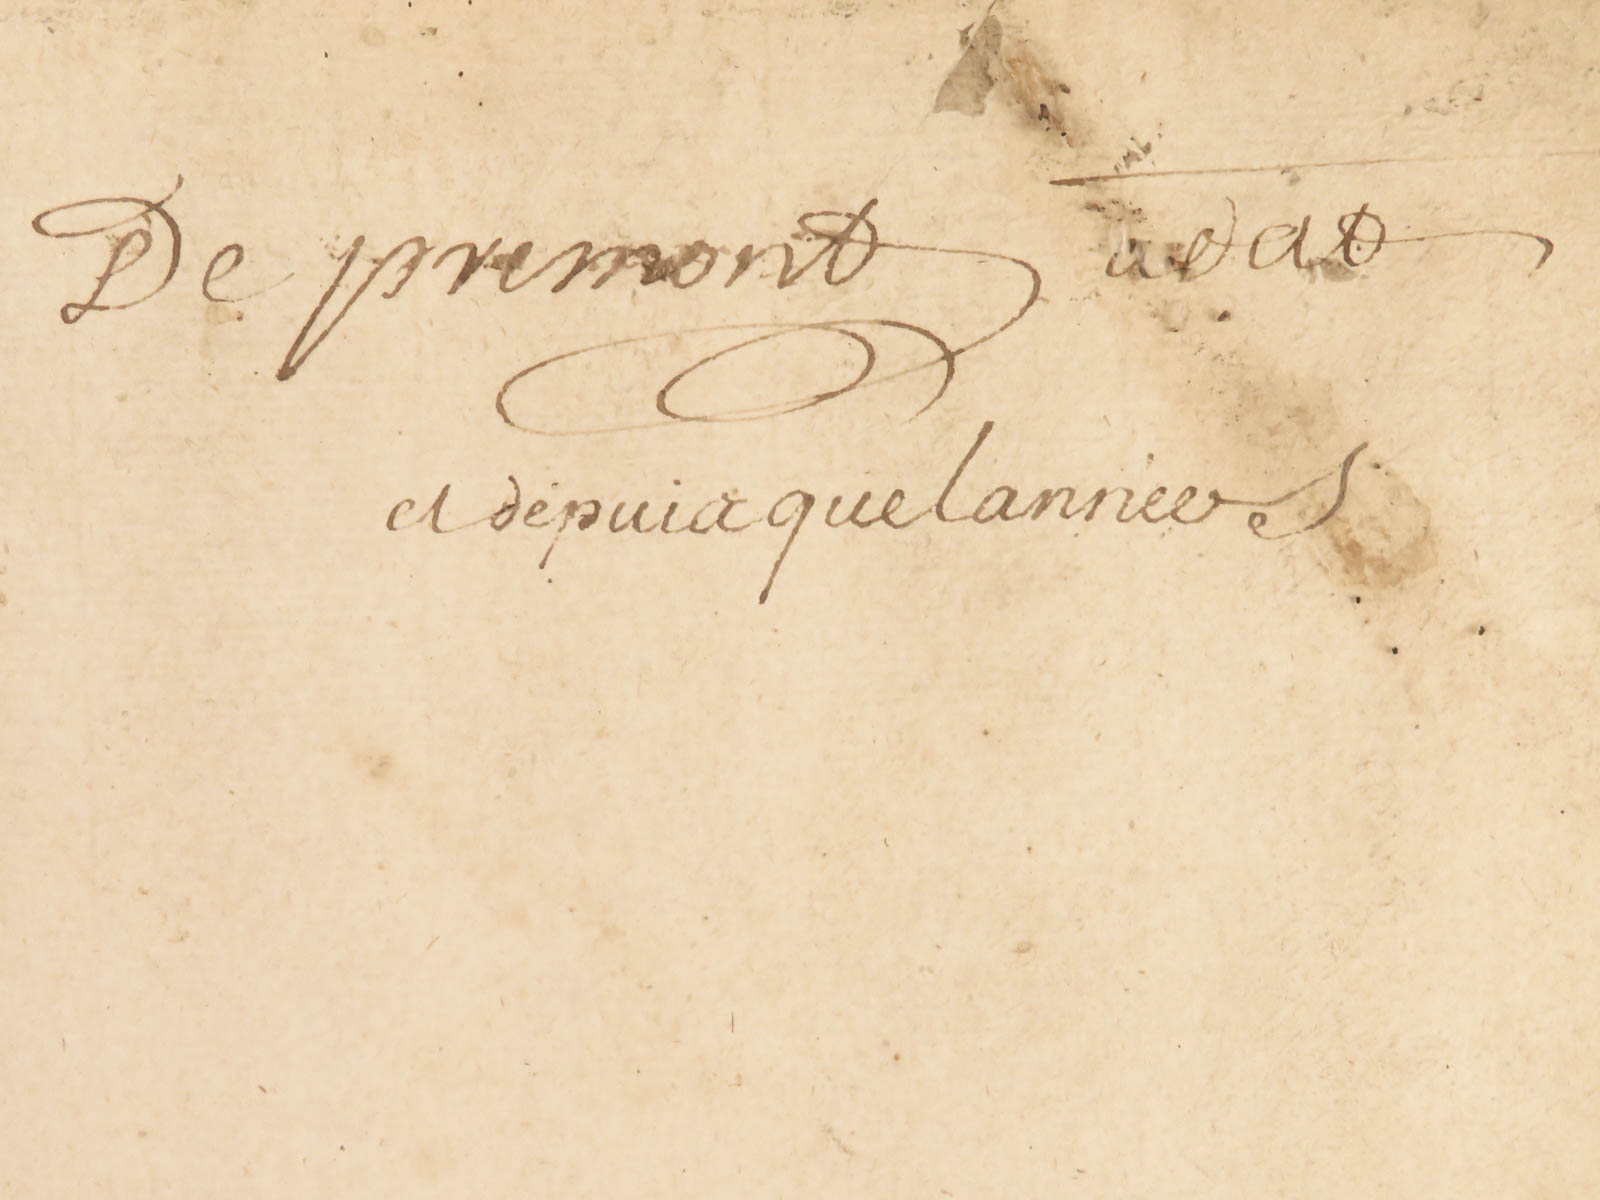 De premont avat
et depuis que lannee